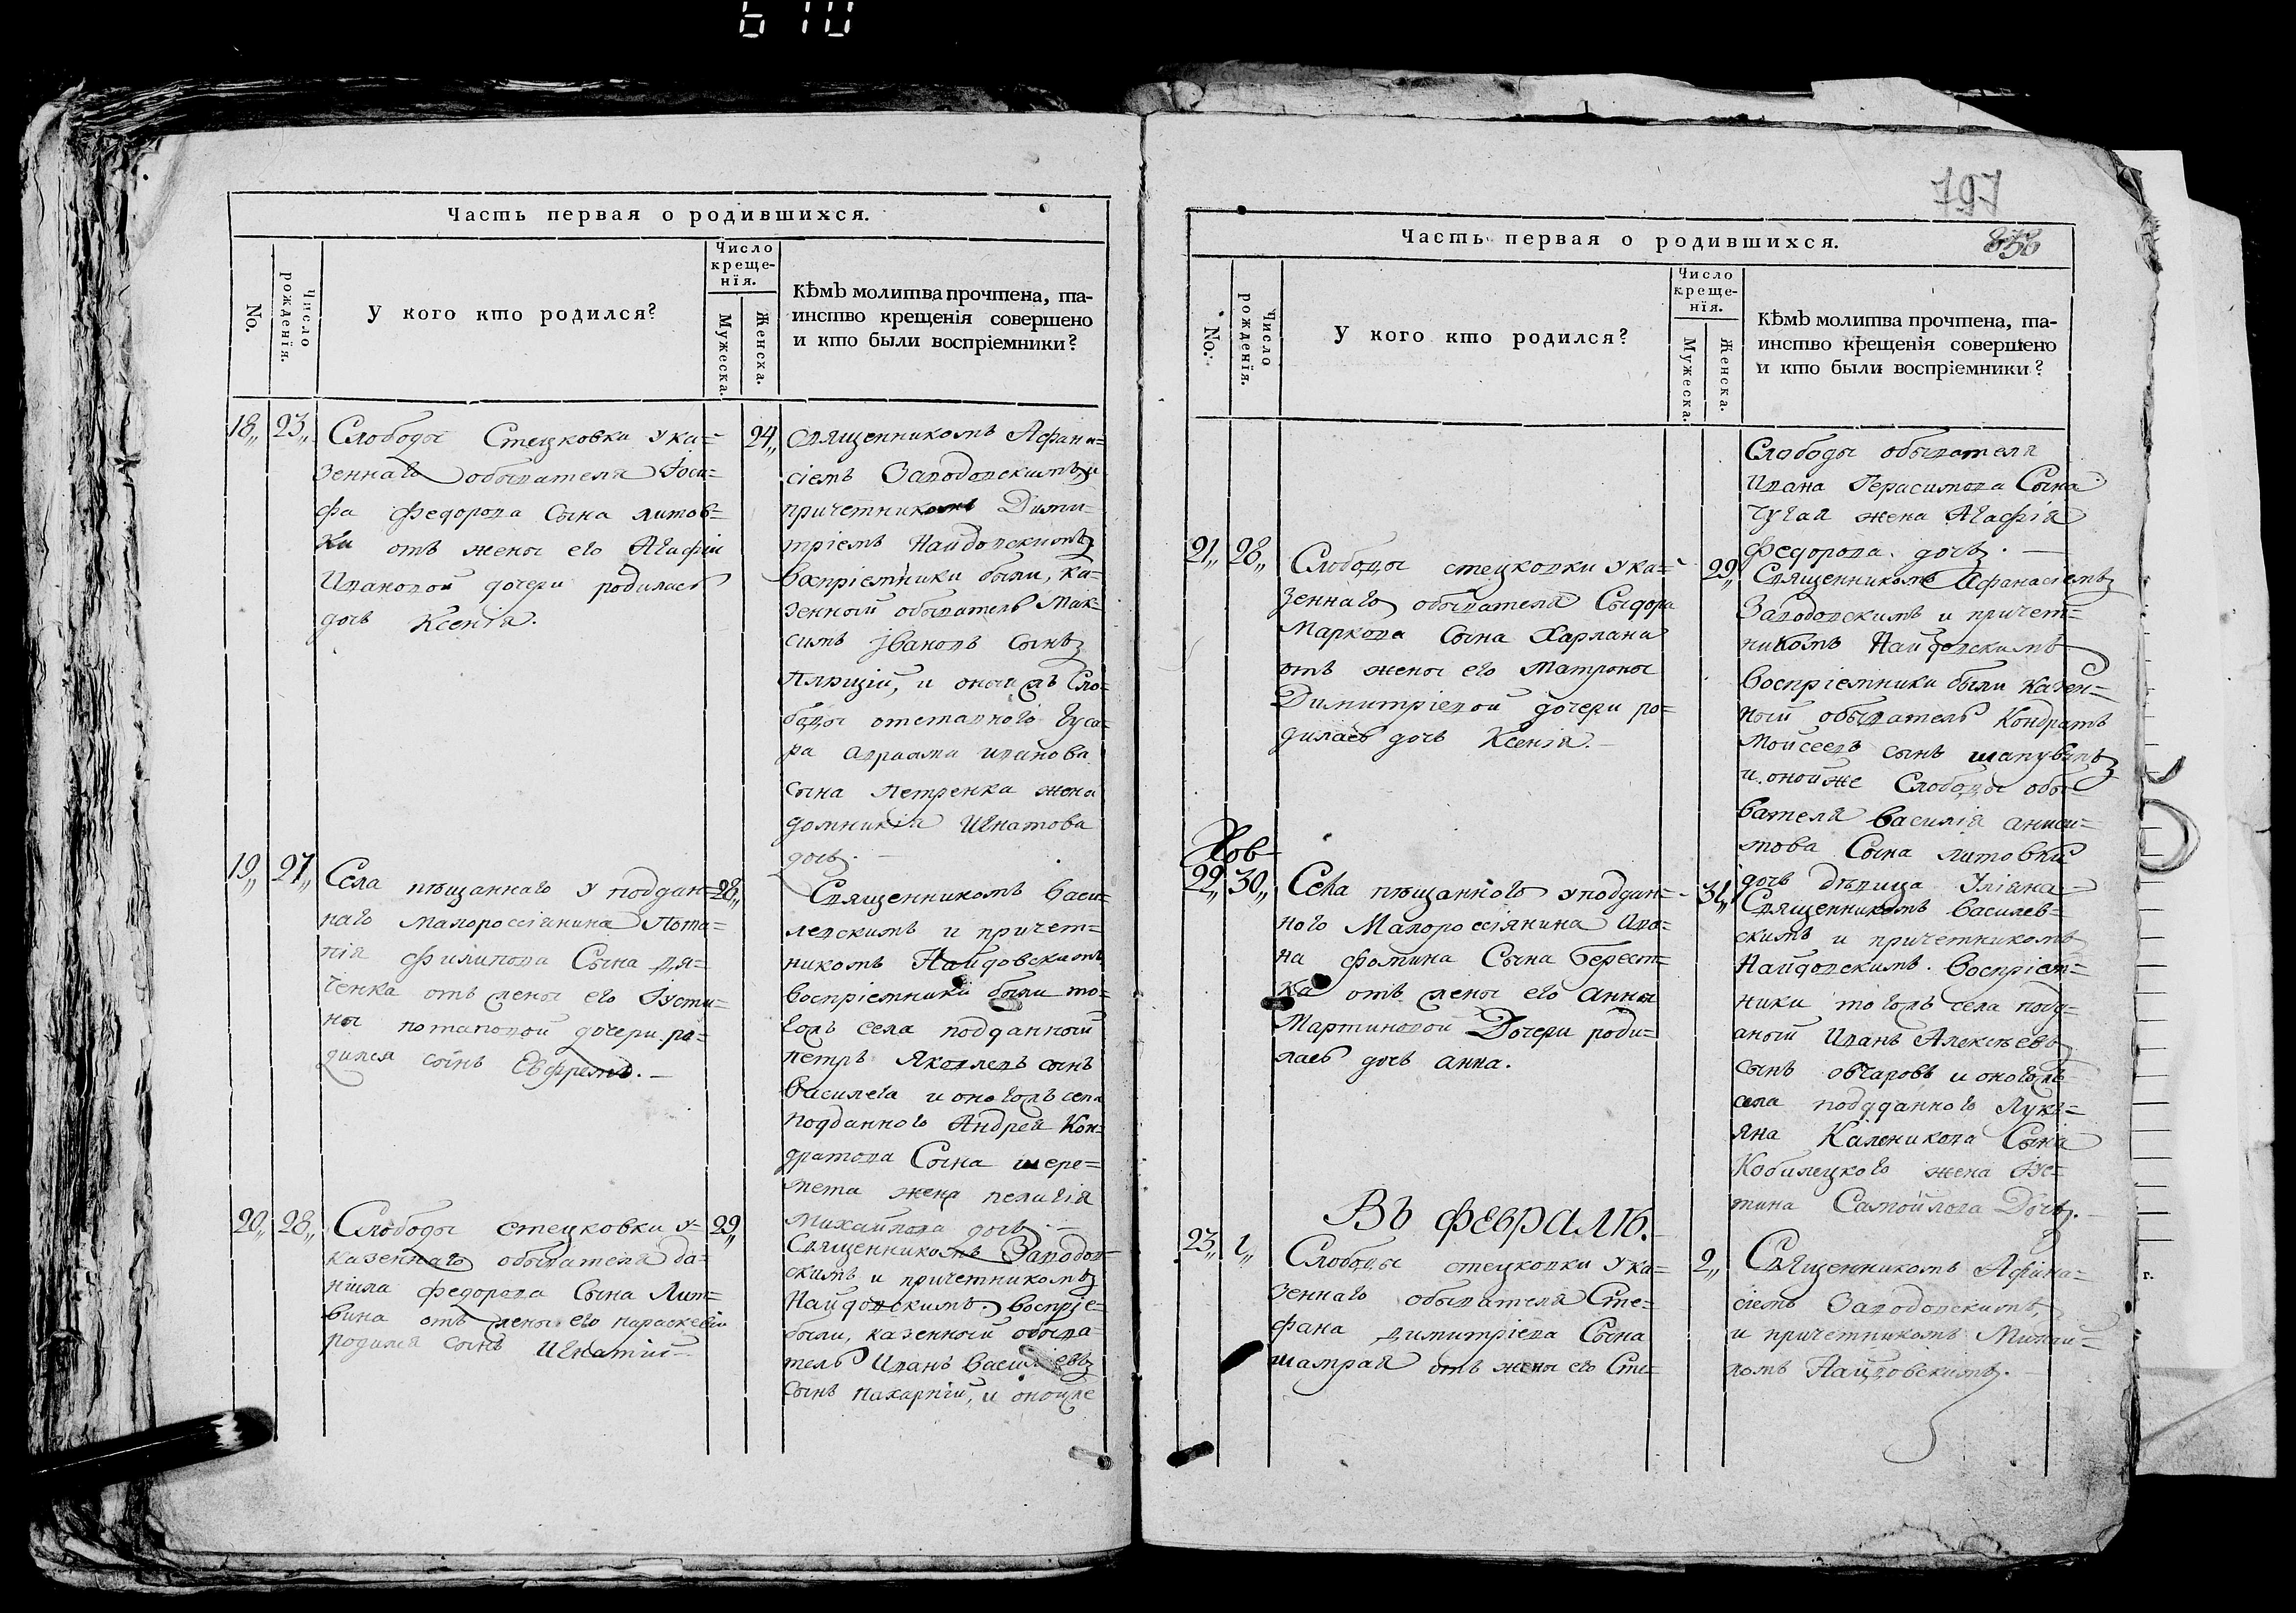 610
Часть первая о родившихся.
No.
Число рожденїя.
У кого кто родился?
Число
креще-
нїя.
Мужеска.
Женска.
КѢмЪ молитва прочтена, та-
инство крещенія совершено
и кто были воспріемники?
18,, 23,, Слободы Стецковки у ка=
зеннаго обывателя Іоси=
фа Федорова Сына литов=
ки отъ жены его Агафіи
Ивановой дочери родилась
дочь Ксенія.
24,, Священникомъ Афана=
сіемъ Заводовскимъ, и
причетникомъ Дими=
тріемъ Найдовскимъ
воспріемники были, ка=
зенный обыватель Мак=
симъ Івановъ сынъ
и оной жъ Сло=
боды отставного гуса=
ра Авраама иванова
сына Петренка жена
домникія Игнатова
дочь.
19,, 27,, Села пѣщаннаго у поддан=
наго малороссіянина Пота=
пія Филипова Сына дя=
ченка отъ жены его Іусти=
ны потаповой дочери ро=
дился сынъ Евфремъ.
28,, Священникомъ Васи=
левскимъ и причет=
никомъ Найдовскимъ
воспріемники были то=
гожъ села подданный
петръ Яковлевъ сынъ
василега и оногожъ села
подданного Андрея Кон=
дратова Сына шере=
мета жена пелагія
Михайлова дочь.
20,, 28,, Слободы стецковки у=
казеннаго обывателя да=
ніила федорова Сына Лит=
вина отъ жены его параскевіи
родился сынъ Игнатий
29,, Священникомъ Заводов=
скимъ и причетникомъ
Найдовскимъ. воспріе=
были, казенной обыва=
тель Иванъ Василіевъ
сынъ пахарній, и онойже
797
838
Часть первая о родившихся.
No.
Число рожденїя.
У кого кто родился?
Число
креще-
нїя.
Мужеска.
Женска.
КѢмЪ молитва прочтена, та-
инство крещенія совершено
и кто были воспріемники?
Слободы обывателя
Ивана Герасимова Сына
Чугая жена Агафія
Федорова дочь.
21,, 28,, Слободы стецковки у ка=
зеннаго обывателя Сыдора
Маркова Сына Харлана
отъ жены его Матроны
Димитріевой дочери ро=
дилась дочь Ксенія.
29,, Священникомъ Афанасіемъ
Заводовскимъ и причет=
никомъ Найдовскимъ
воспріемники были казен=
ный обыватель Кондратъ
Мойсеевъ сынъ
и онойже Слободы обы=
вателя василія аниси=
мова Сына литовки
дочь дѣвица Уліяна
22,, 30,, Села пѣщанного у поддан=
ного Малороссіянина Ива=
на фомина Сына Берест=
ка отъ жены его анны
Мартиновой Дочери роди=
лась дочь анна.
31,, Священникомъ Василев=
скимъ и причетникомъ
Найдовскимъ. воспріем=
ники тогожъ села подд=
аный Иванъ Алексѣевъ
сынъ овчаровъ и оногожъ
села подданного Лукі=
яна Каленикова Сына
Кобилецкого жена Іус=
тина Самойлова Дочь.
Въ Февралѣ.
23,, 1,, Слободы стецковки у ка=
зеннаго обывателя Сте=
фана димитріева Сына
шатрая отъ жены его Сте=
2,, Священникомъ Афана=
сіемъ Заводовскимъ,
и причетникомъ Михай=
ломъ Найдовскимъ.